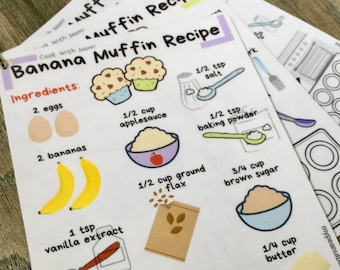 Cook With Mom
Banana Muffin Recipe
Ingredients:
2 eggs
1/2 cup
applesauce
1/2 tsp
salt
1/2 tsp
baking powder
2 bananas
1/2 cup ground
flax
3/4 cup
brown sugar
1 tsp
vanilla extract
1/4 cup
butter